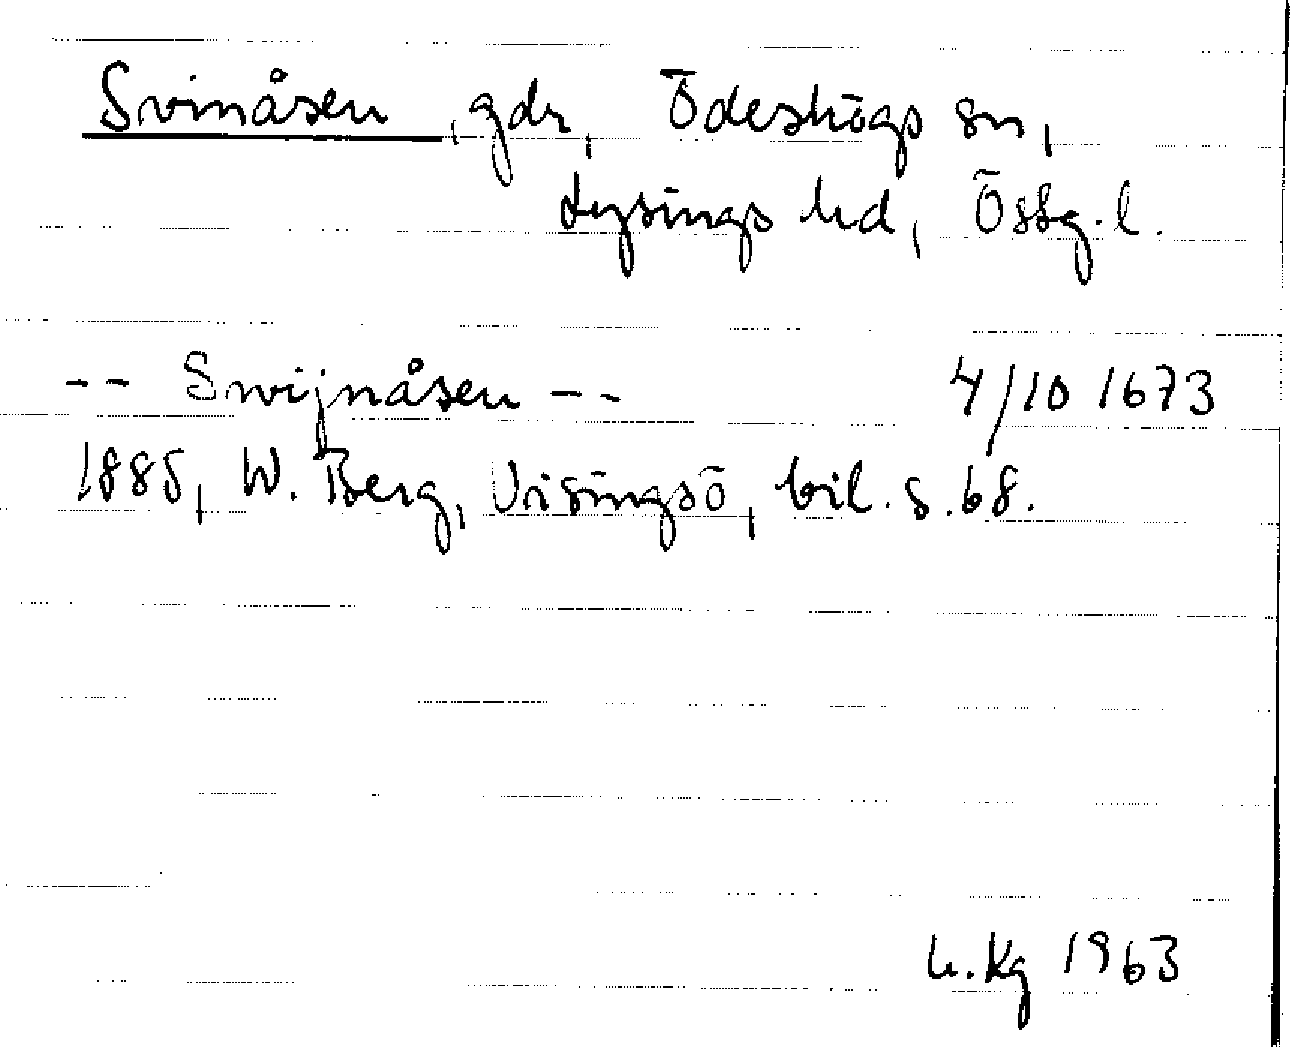 Svinåsen, gdr, Ödeshögs sn,
Lysings hd, Östg. l.
-- Swijnåsen -- 4/10 1673
1885, W. Berg, Visingsö, bil. s. 68.
h. Kg 1963